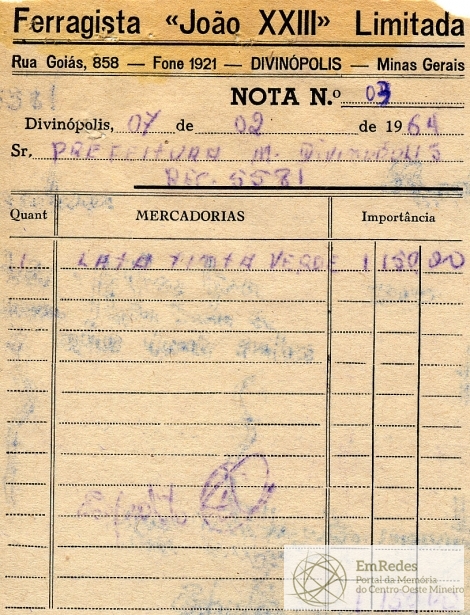 Ferragista «João XXIII» Limitada
Rua Goiás, 858 — Fone 1921 — DIVINÓPOLIS — Minas Gerais
NOTA N.º 03
Divinópolis, 07 de 02 de 1964
Sr, PREFEITURA M. DIVINOPOLIS
REC. 5581
Quant MERCADORIAS Importância
1 LATA TINTA VERDE 1 150 00
EmRedes
Portal da Memória
do Centro-Oeste Mineiro